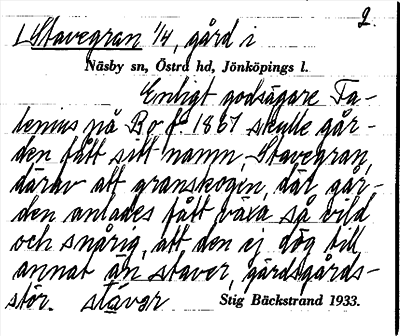 2.
Stavegran 1/4, gård i
Näsby sn, Östra hd, Jönköpings l.
Enligt godsägare Fa-
lenius på Bo f. 1867 skulle går-
den fått sitt namn, Stavegran,
därav att granskogen, där går-
den anlades fått växa så vild
och snårig, att den ej dög till
annat än staver, gärdsgårds-
stör. stavər Stig Bäckstrand 1933.